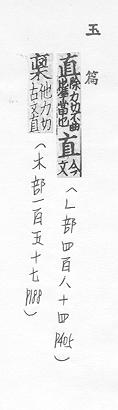 玉篇
直除力切不曲也當也直今文
（乚部四百八十四P405）
㮨他力切古文直
（木部一百五十七P188）